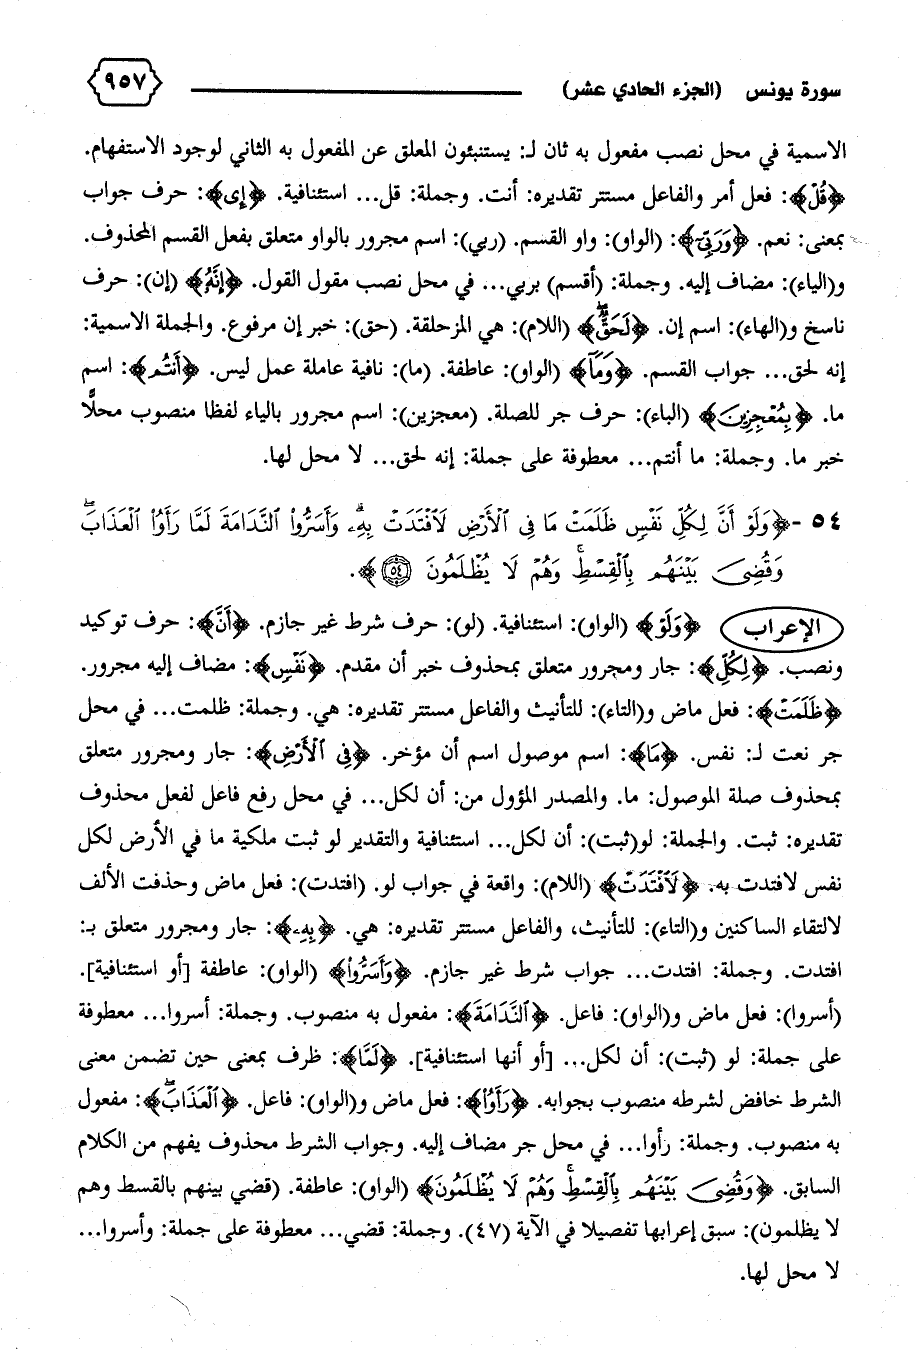 سورة يونس (الجزء الحادي عشر) ٩٥٧
الاسمية في محل نصب مفعول به ثان لـ: يستنبئون المعلق عن المفعول به الثاني لوجود الاستفهام.
﴿قُلْ﴾: فعل أمر والفاعل مستتر تقديره: أنت. وجملة: قل... استئنافية. ﴿إِى﴾: حرف جواب
بمعنى: نعم. ﴿وَرَبِّىٓ﴾: (الواو): واو القسم. (ربي): اسم مجرور بالواو متعلق بفعل القسم المحذوف.
و(الياء): مضاف إليه. وجملة: (أقسم) بربي... في محل نصب مقول القول. ﴿إِنَّهُۥ﴾ (إن): حرف
ناسخ و(الهاء): اسم إن. ﴿لَحَقٌّۖ﴾ (اللام): هي المزحلقة. (حق): خبر إن مرفوع. والجملة الاسمية:
إنه لحق... جواب القسم. ﴿وَمَآ﴾ (الواو): عاطفة. (ما): نافية عاملة عمل ليس. ﴿أَنتُم﴾: اسم
ما. ﴿بِمُعْجِزِينَ﴾ (الباء): حرف جر للصلة. (معجزين): اسم مجرور بالياء لفظا منصوب محلًّا
خبر ما. وجملة: ما أنتم... معطوفة على جملة: إنه لحق... لا محل لها.
٥٤ -﴿وَلَوْ أَنَّ لِكُلِّ نَفْسٍ ظَلَمَتْ مَا فِى ٱلْأَرْضِ لَٱفْتَدَتْ بِهِۦۗ وَأَسَرُّوا۟ ٱلنَّدَامَةَ لَمَّا رَأَوُا۟ ٱلْعَذَابَۖ
وَقُضِىَ بَيْنَهُم بِٱلْقِسْطِۚ وَهُمْ لَا يُظْلَمُونَ ٥٤﴾.
الإعراب ﴿وَلَوْ﴾ (الواو): استئنافية. (لو): حرف شرط غير جازم. ﴿أَنَّ﴾: حرف توكيد
ونصب. ﴿لِكُلِّ﴾: جار ومجرور متعلق بمحذوف خبر أن مقدم. ﴿نَفْسٍ﴾: مضاف إليه مجرور.
﴿ظَلَمَتْ﴾: فعل ماض و(التاء): للتأنيث والفاعل مستتر تقديره: هي. وجملة: ظلمت... في محل
جر نعت لـ: نفس. ﴿مَا﴾: اسم موصول اسم أن مؤخر. ﴿فِى ٱلْأَرْضِ﴾: جار ومجرور متعلق
بمحذوف صلة الموصول: ما. والمصدر المؤول من: أن لكل... في محل رفع فاعل لفعل محذوف
تقديره: ثبت. والجملة: لو(ثبت): أن لكل... استئنافية والتقدير لو ثبت ملكية ما في الأرض لكل
نفس لافتدت به. ﴿لَٱفْتَدَتْ﴾ (اللام): واقعة في جواب لو. (افتدت): فعل ماض وحذفت الألف
لالتقاء الساكنين و(التاء): للتأنيث، والفاعل مستتر تقديره: هي. ﴿بِهِۦ﴾: جار ومجرور متعلق بـ:
افتدت. وجملة: افتدت... جواب شرط غير جازم. ﴿وَأَسَرُّوا۟﴾ (الواو): عاطفة [أو استئنافية].
(أسروا): فعل ماض و(الواو): فاعل. ﴿ٱلنَّدَامَةَ﴾: مفعول به منصوب. وجملة: أسروا... معطوفة
على جملة: لو (ثبت): أن لكل... [أو أنها استئنافية]. ﴿لَمَّا﴾: ظرف بمعنى حين تضمن معنى
الشرط خافض لشرطه منصوب بجوابه. ﴿رَأَوُا۟﴾: فعل ماض و(الواو): فاعل. ﴿ٱلْعَذَابَۖ﴾: مفعول
به منصوب. وجملة: رأوا... في محل جر مضاف إليه. وجواب الشرط محذوف يفهم من الكلام
السابق. ﴿وَقُضِىَ بَيْنَهُم بِٱلْقِسْطِۚ وَهُمْ لَا يُظْلَمُونَ﴾ (الواو): عاطفة. (قضي بينهم بالقسط وهم
لا يظلمون): سبق إعرابها تفصيلا في الآية (٤٧). وجملة: قضي... معطوفة على جملة: وأسروا...
لا محل لها.